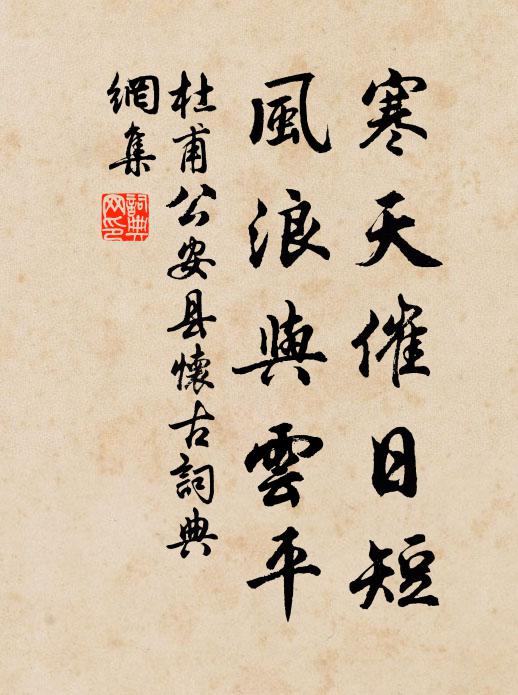 寒天催日短
風浪與雲平
杜甫公安县懷古詞典
網集
詞典
网印